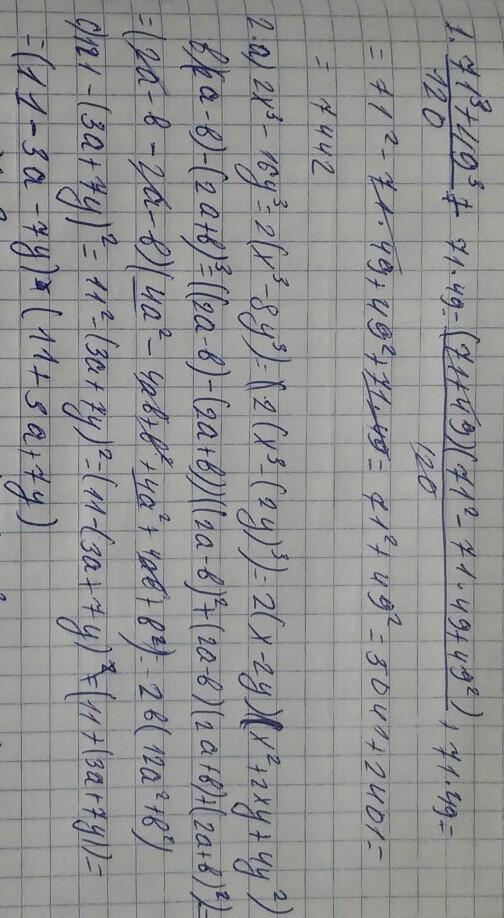 1. (71³+49³)/120 + 71·49 = (71+49)(71²-71·49+49²)/120 + 71·49 =
= 71² - 71·49 + 49² + 71·49 = 71² + 49² = 5041 + 2401 =
= 7442
2. а) 2x³ - 16y³ = 2(x³ - 8y³) = (2(x³ - (2y)³) = 2(x - 2y)(x² + 2xy + 4y²)
в)(2a - b) - (2a+b)³ = ((2a - b) - (2a+b))((2a - b)² + (2a - b)(2a+b) + (2a+b)²) =
= (2a - b - 2a - b)(4a² - 4ab + b² + 4a² + 4ab + b²) = -2b(12a² + b²)
c) 121 - (3a + 7y)² = 11² - (3a + 7y)² = (11 - (3a + 7y)) * (11 + (3a + 7y)) =
= (11 - 3a - 7y) * (11 + 3a + 7y)